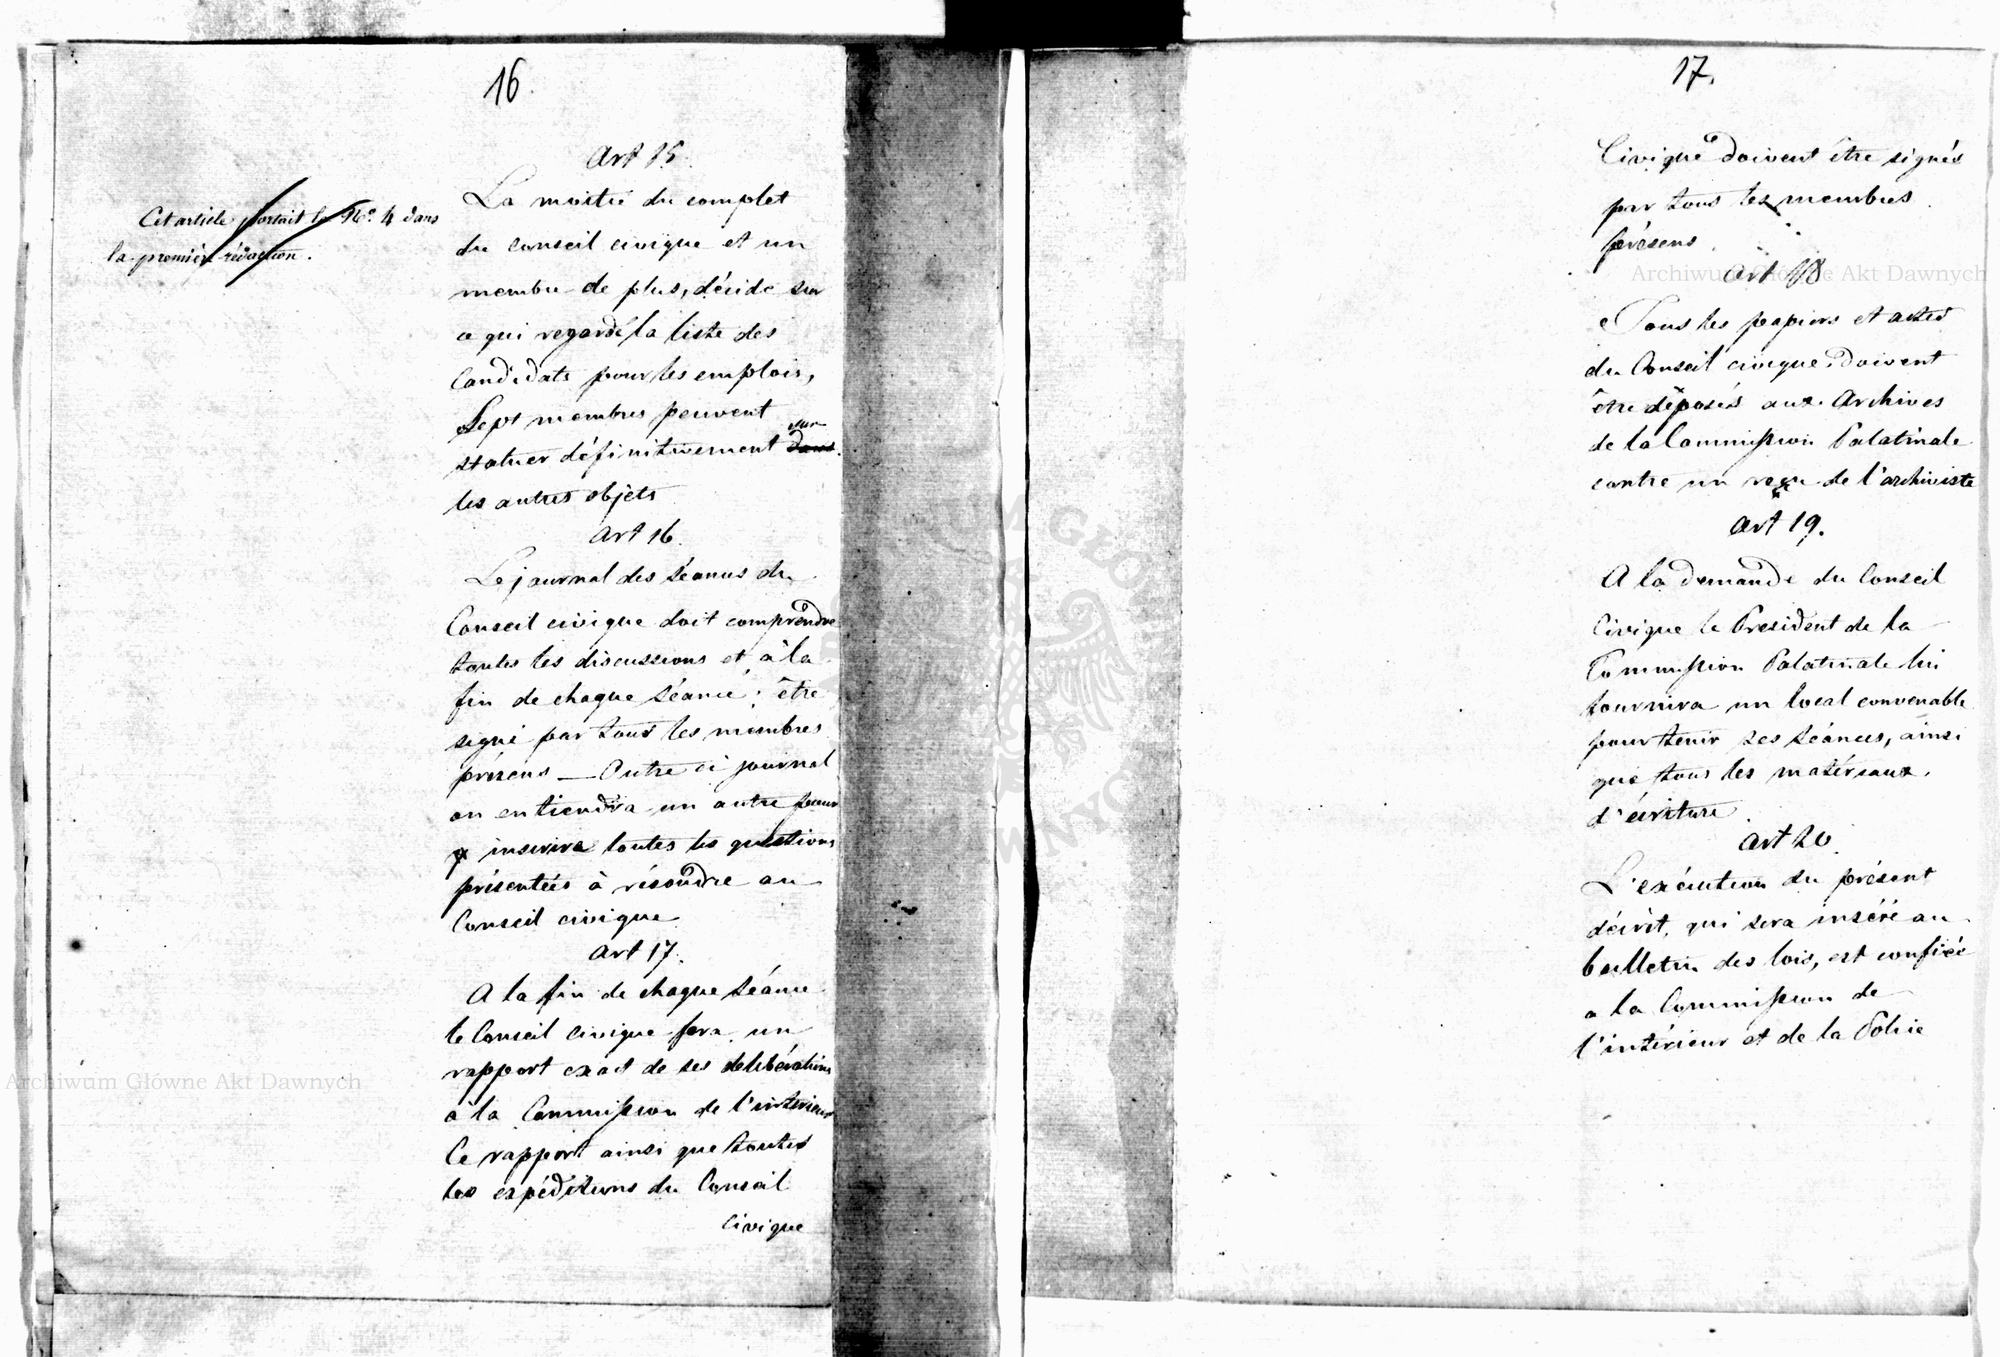 16.
Art 15.
Cet article portait le No. 4 dans
la première rédaction.
La moitié du complet
du conseil civique et un
membre de plus, décide sur
ce qui regarde la liste des
Candidats pour les emplois,
Sept membres peuvent
sur
statuer définitivement dans
les autres objets
Art 16.
Le journal des séances du
Conseil civique doit comprendre
toutes les discussions et à la
fin de chaque séance; être
signé par tous les membres
présens — Outre ce journal
on en tiendra un autre pour
y inscrire toutes les questions
présentées à résoudre au
Conseil civique
Art 17.
A la fin de chaque séance
le Conseil civique fera un
rapport exact de ses délibérations
à la Commission de l'intérieur
Ce rapport ainsi que toutes
les expéditions du Conseil
civique
17.
Civique doivent être signés
par tous les membres
présens.
Art 18
Tous les papiers et actes
du Conseil civique doivent
être déposés aux Archives
de la Commission Palatinale
contre un reçu de l'archiviste
Art 19.
A la demande du Conseil
Civique le President de la
Commission Palatinale lui
fournira un local convenable
pour tenir ses séances, ainsi
que tous les matériaux
d'écriture.
Art 20.
L'exécution du présent
décrèt, qui sera inséré au
bulletin des lois, est confiée
a la Commission de
l'intérieur et de la Police
Archiwum Główne Akt Dawnych
Archiwum Główne Akt Dawnych